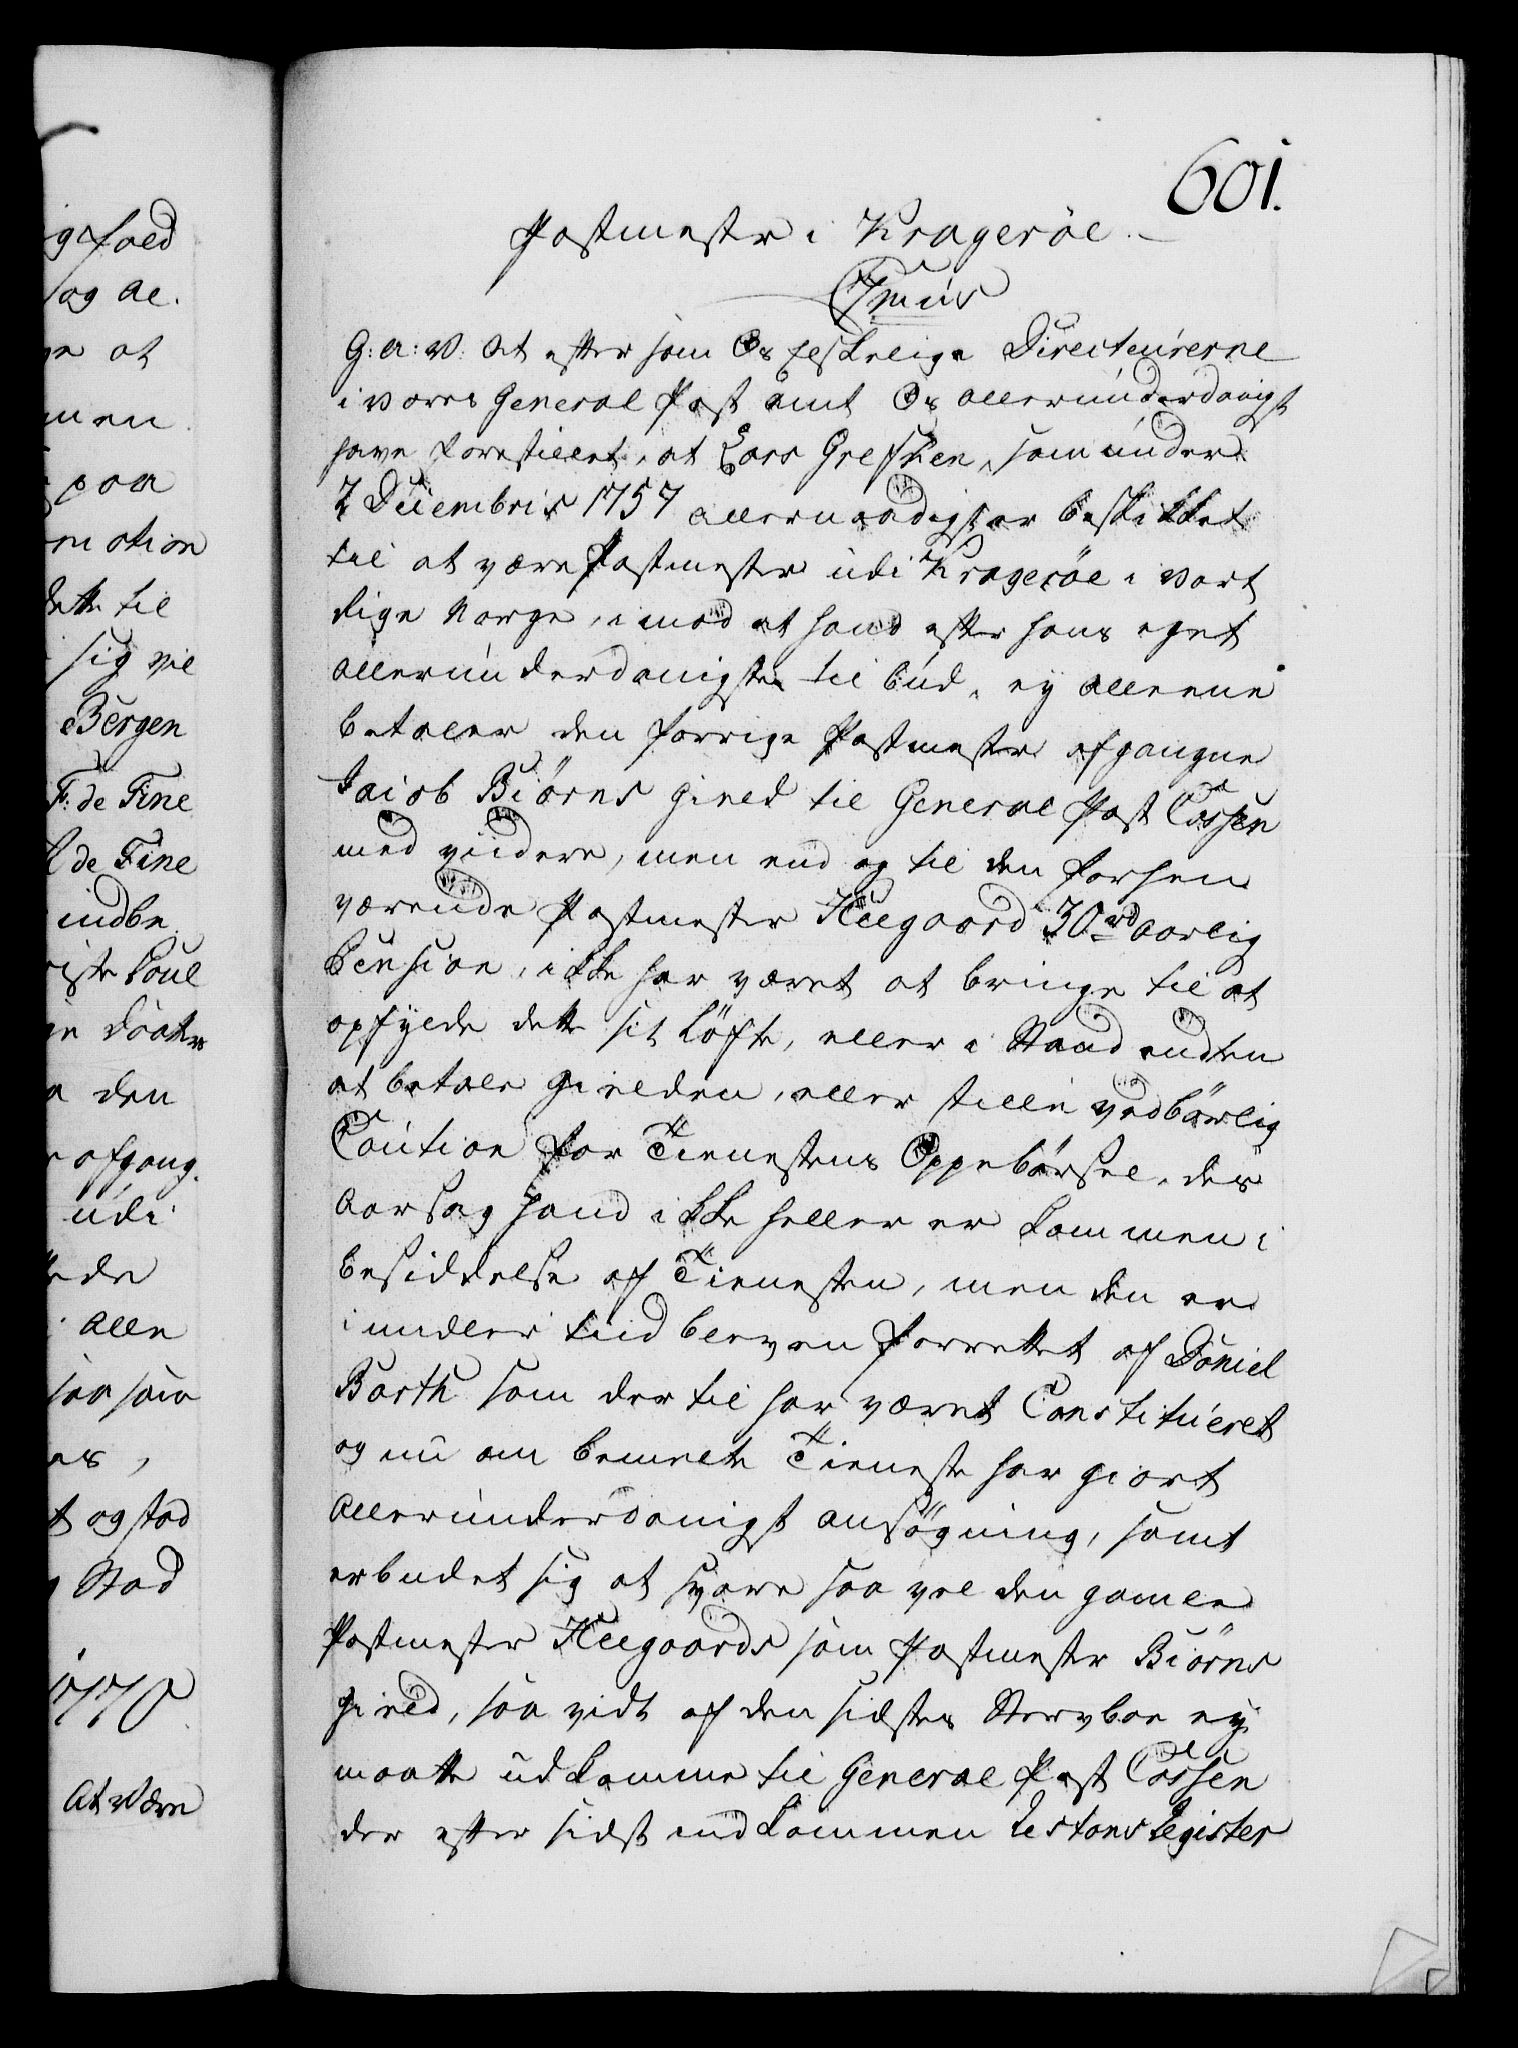 601.
Postmester i Kragerøe.
7mus
G: A: V: At eftersom Os Elskelige Directeurerne
i vores General Post Amt Os allerunderdanigst
have forestillet, at Lars Grefsken, som under
2 Decembris 1757 allernaadigst er beskikket
til at være Postmester udi Kragerøe i vort
Rige Norge, imod at hand efter hans eget
allerunderdanigste tilbud, ey alleene
betaler den forrige Postmester afgangne
Jacob Biørns Gield til General Post Cassen
med viidere, men end og til den forhen
værende Postmester Heegaard 30 rd aarlig
Pension, ikke har været at bringe til at
opfylde dette sit Løfte, eller i Stand endten
at betale Gielden, eller stille vedbørlig
Caution for Tienestens Oppebørsel, des
Aarsag hand ikke heller er kommen i
besiddelse af Tienesten, men den er
imidler tiid bleven forrettet af Daniel
Barth som dertil har været Constitueret
og nu om bemelte Tieneste har giort
allerunderdanigst ansøgning, samt
erbudet sig at svare saa vel den gamle
Postmester Heegaards som Postmester Biørns
Gield, saa vidt af den sidstes Stervboe ey
maatte udkomme til General Post Cassen
der efter sidst indkommen Restans Register
ig foed
og Al.
at
men
paa
motion
dette til
sig vil
Bergen
F: de Fine
de Fine
indbe
Poul
den
afgang.
udi
Alle
saa som
og stad
Stad
1770
At være